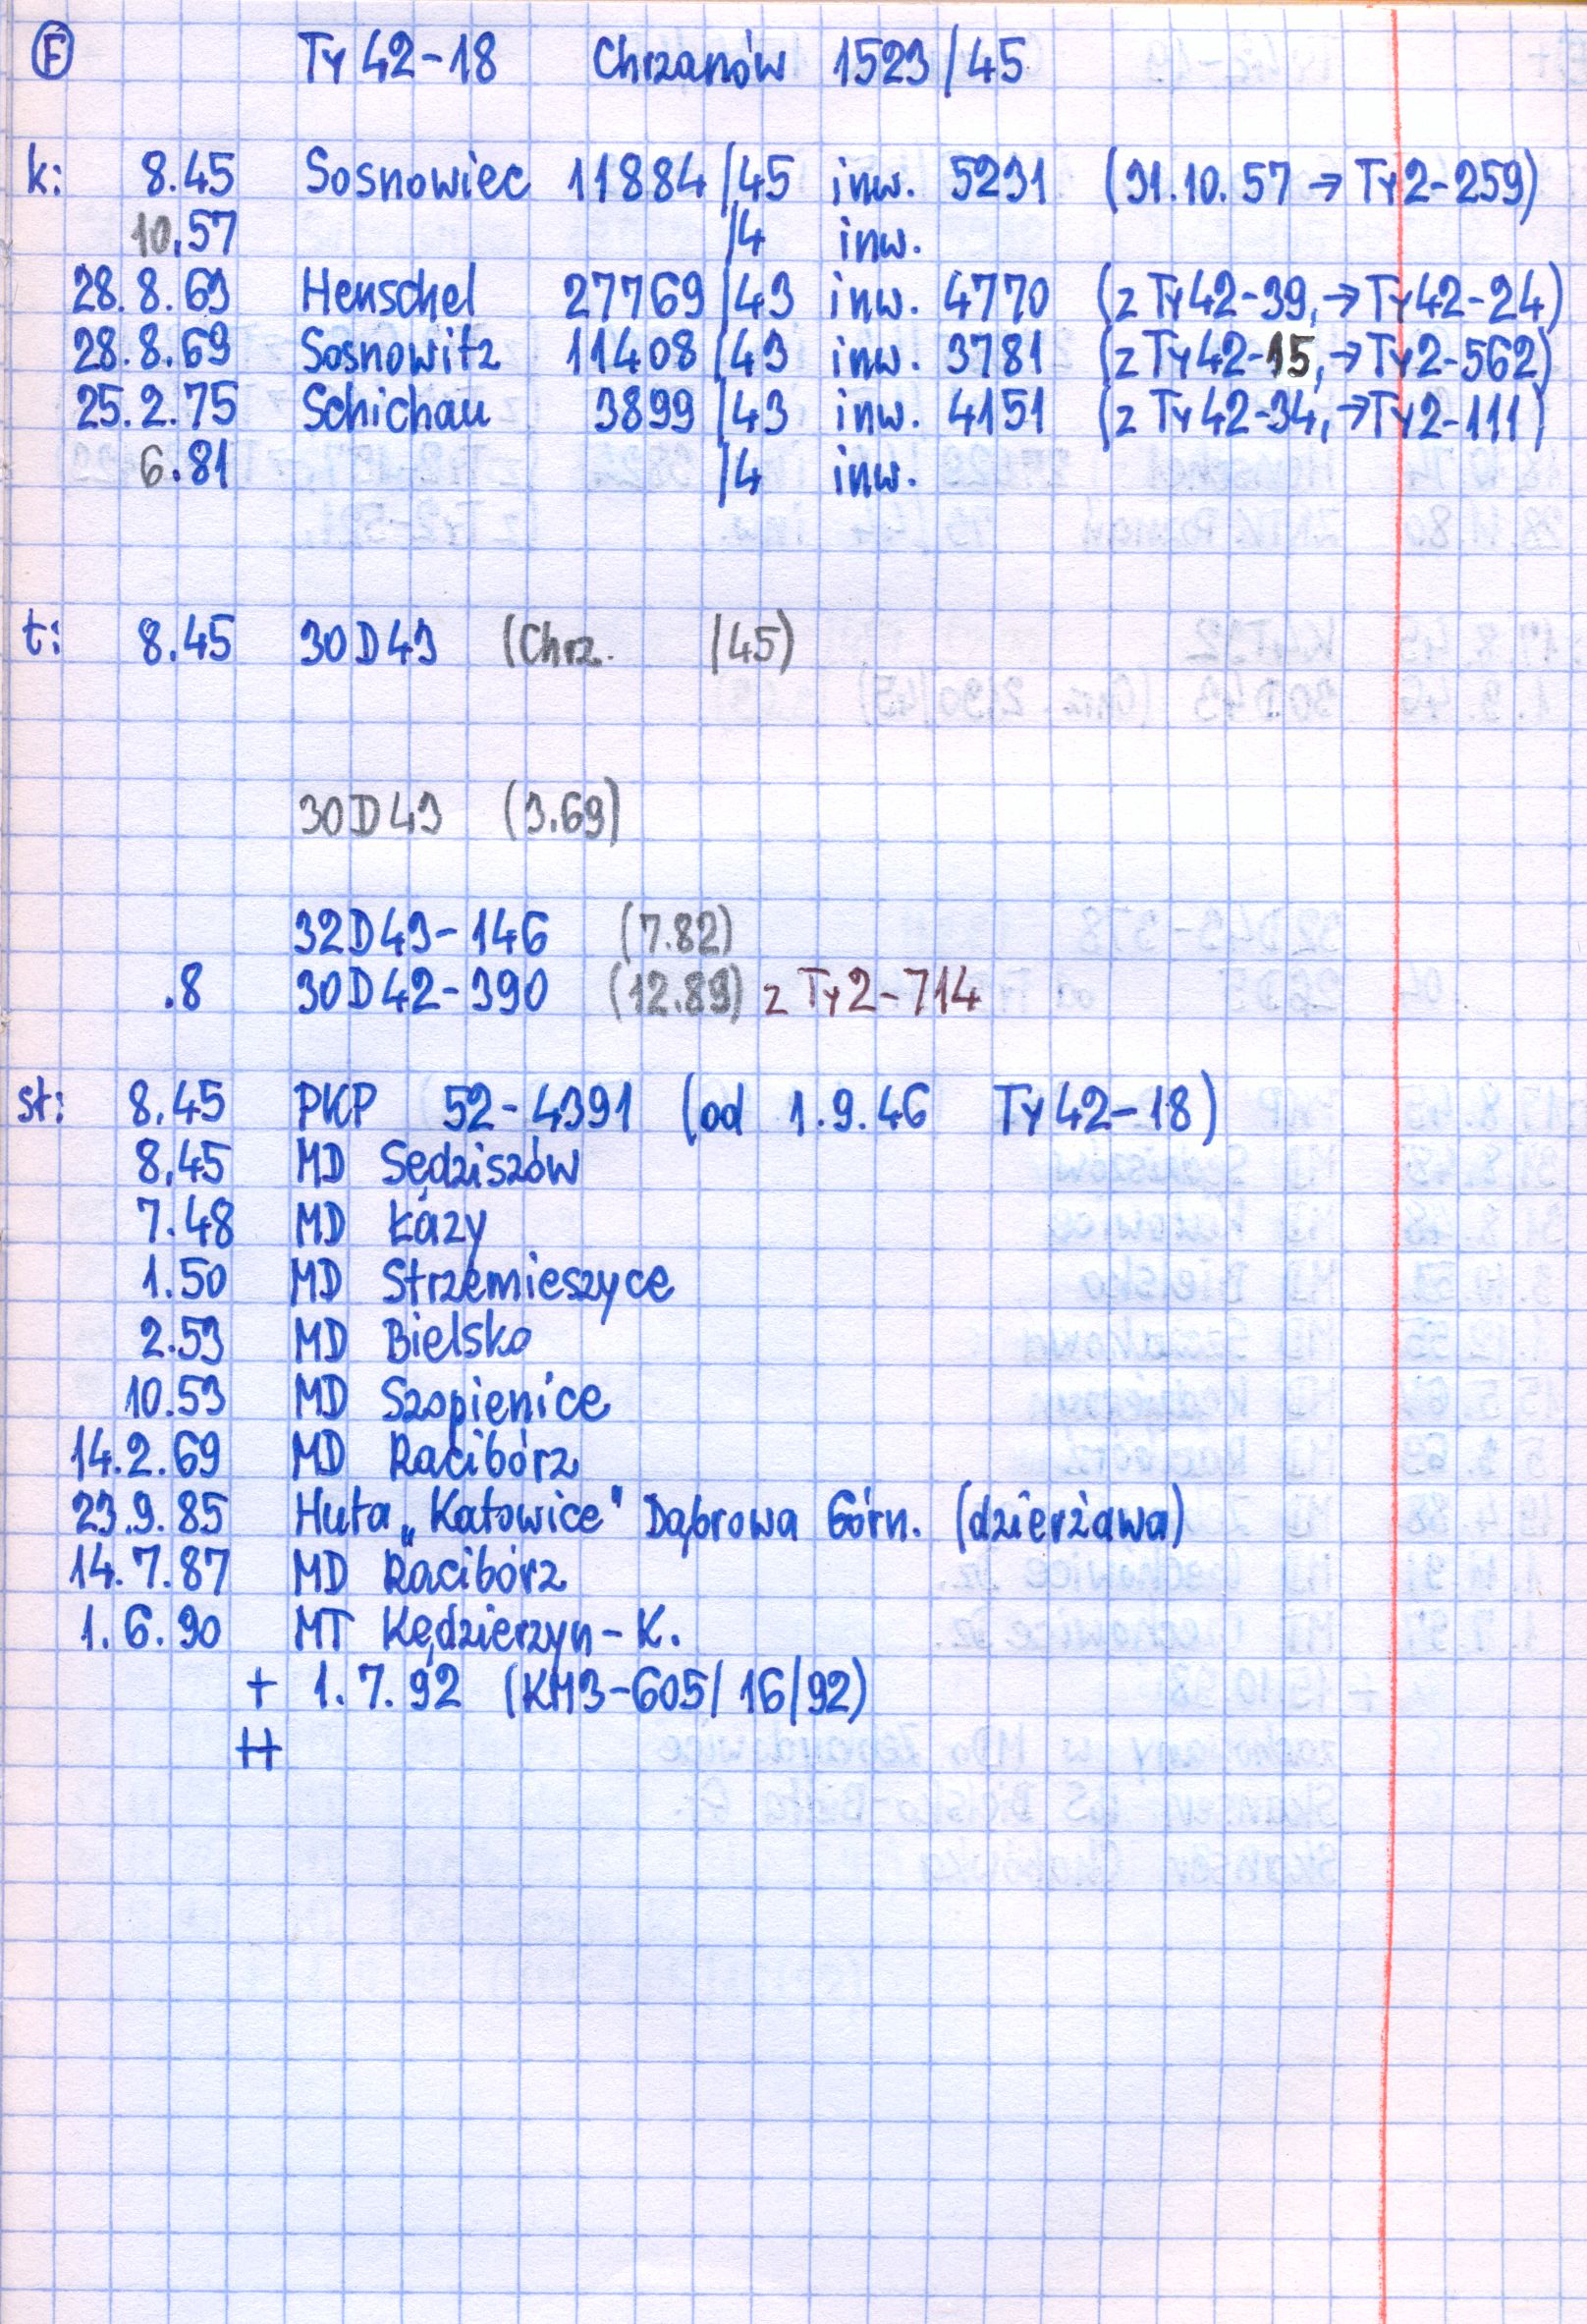 F Ty42-18 Chrzanów 1523/45
k: 8.45 Sosnowiec 11884/45 inw. 5231 (31.10.57 → Ty2-259)
10.57 /4 inw.
28.8.63 Henschel 27769/43 inw. 4770 (z Ty42-39, → Ty42-24)
28.8.69 Sosnowitz 11408/43 inw. 3781 (z Ty42-15, → Ty2-562)
25.2.75 Schichau 3899/43 inw. 4151 (z Ty42-34, → Ty2-111)
6.81 /4 inw.
t: 8.45 30D43 (Chrz. /45)
30D43 (3.69)
32D43-146 (7.82)
.8 30D42-390 (12.89) z Ty2-714
st: 8.45 PKP 52-4391 (od 1.9.46 Ty42-18)
8.45 MD Sędziszów
7.48 MD Łazy
1.50 MD Strzemieszyce
2.53 MD Bielsko
10.53 MD Szopienice
14.2.69 MD Racibórz
23.9.85 Huta „Katowice" Dąbrowa Górn. (dzierżawa)
14.7.87 MD Racibórz
1.6.90 MT Kędzierzyn-K.
+ 1.7.92 (KM3-605/16/92)
++